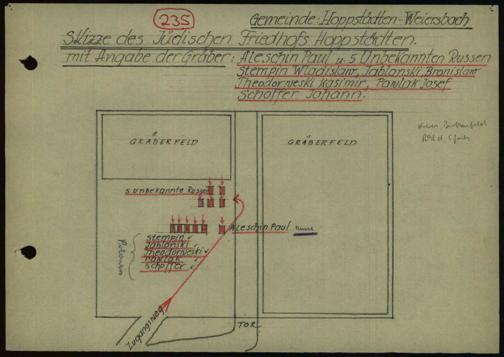 235
Gemeinde: Hoppstädten-Weiersbach
Skizze des Jüdischen Friedhofs Hoppstädten.
mit Angabe der Gräber: Aleschin Paul u. 5 Unbekannten Russen
Stempin Wladislaw, Jablanski, Bronislaw
Theodorweski Kasimir, Pawlak Josef
Schoffer Johann.
GRÄBERFELD
GRÄBERFELD
5 unbekannte Russen
Aleschin Paul
Stempin
Jablanski
Theodorweski
Pawlak
Schoffer
Polen
Zugangsweg
TOR